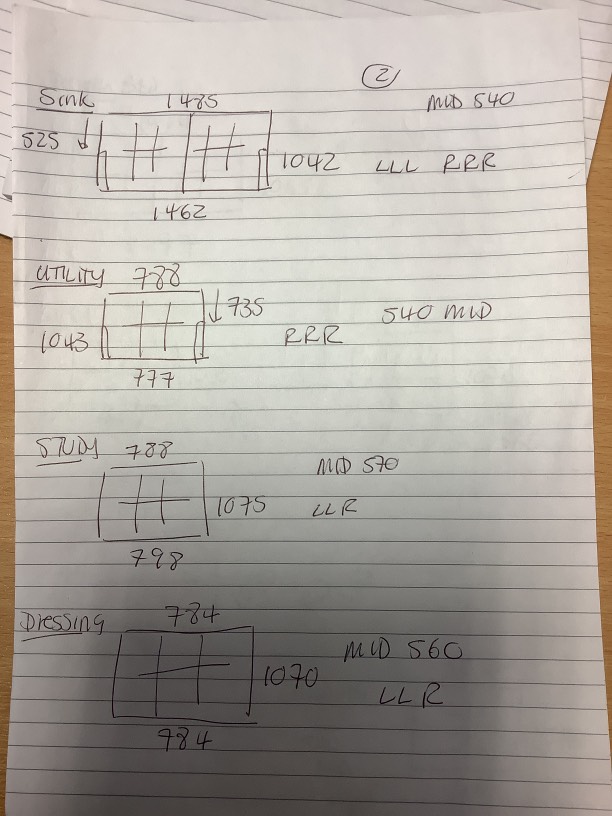 2
Sink 1485 MID 540
525 1042 LLL RRR
1462
UTILITY 788
735 540 MID
1043 RRR
777
STUDY 788
MID 570
1075 LLR
798
Dressing 784
MID 560
1070
LLR
784